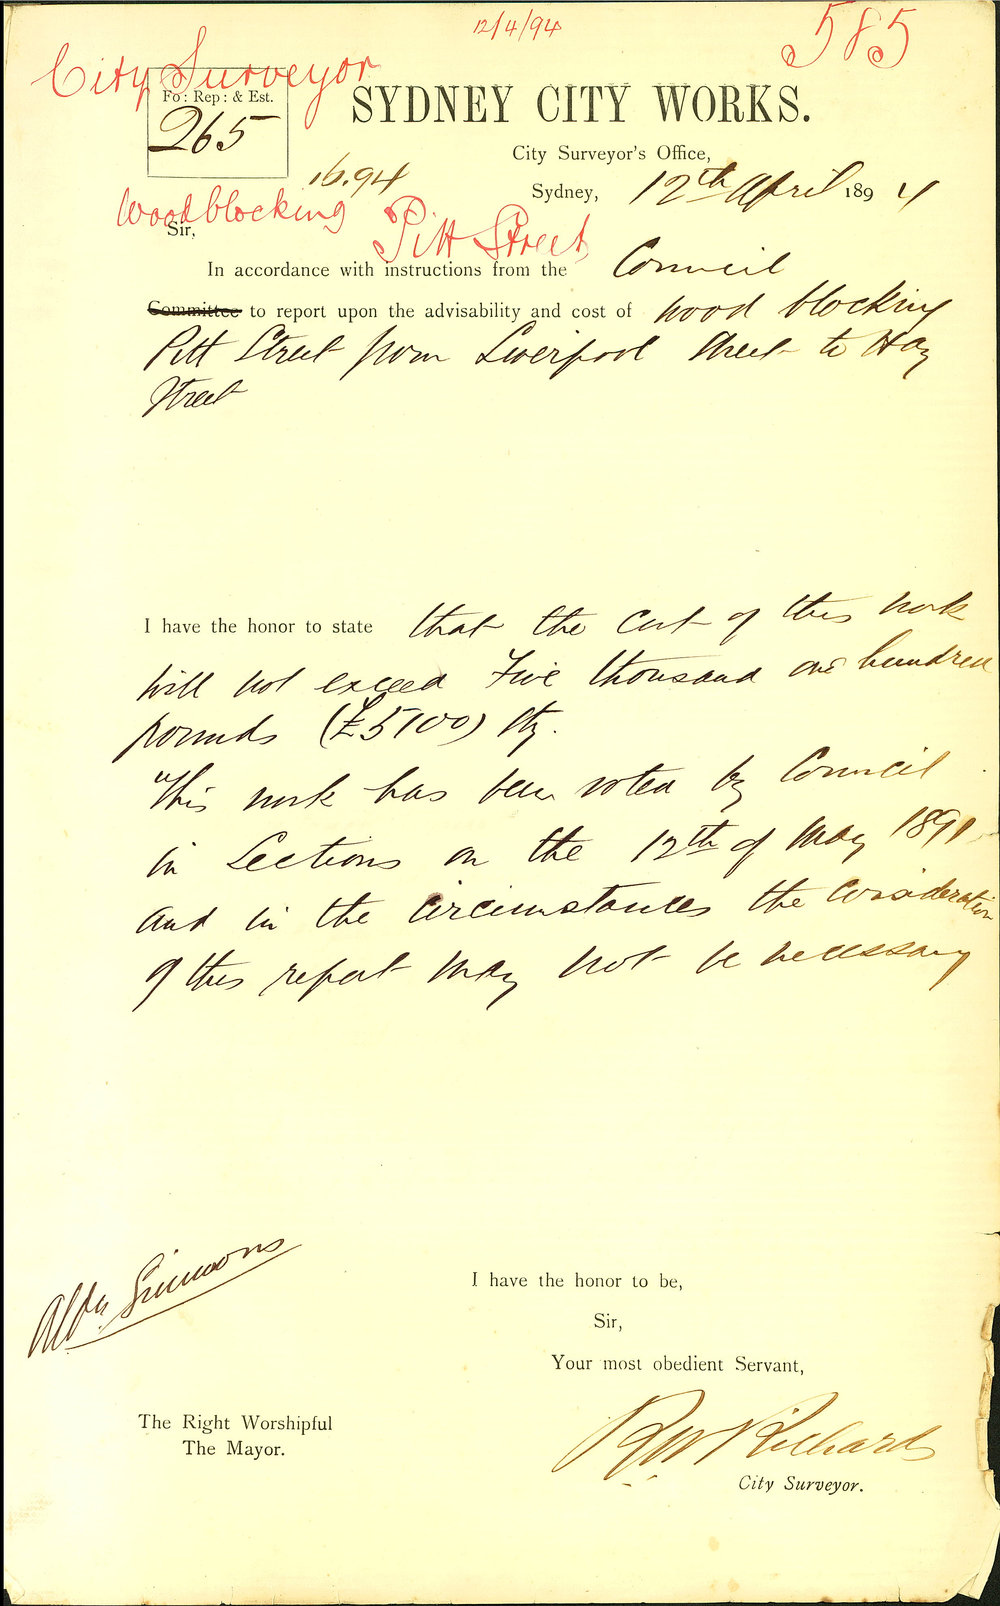 12/4/94
585
City Surveyor
Fo: Rep: & Est.
265
SYDNEY CITY WORKS.
City Surveyor's Office,
16.94
Sydney, 12th April 1894
Woodblocking Pitt Street
Sir,
In accordance with instructions from the Council
Committee to report upon the advisability and cost of wood blocking
Pitt Street from Liverpool Street to Hay
Street
I have the honor to state that the cost of this work
will not exceed Five thousand one hundred
pounds (£5100) Stg.
This work has been voted by Council
in Sections on the 12th of May 1891
and in the circumstances the consideration
of this report may not be necessary
I have the honor to be,
Sir,
Your most obedient Servant,
Ald. Simmons
The Right Worshipful
The Mayor.
RW Richards
City Surveyor.